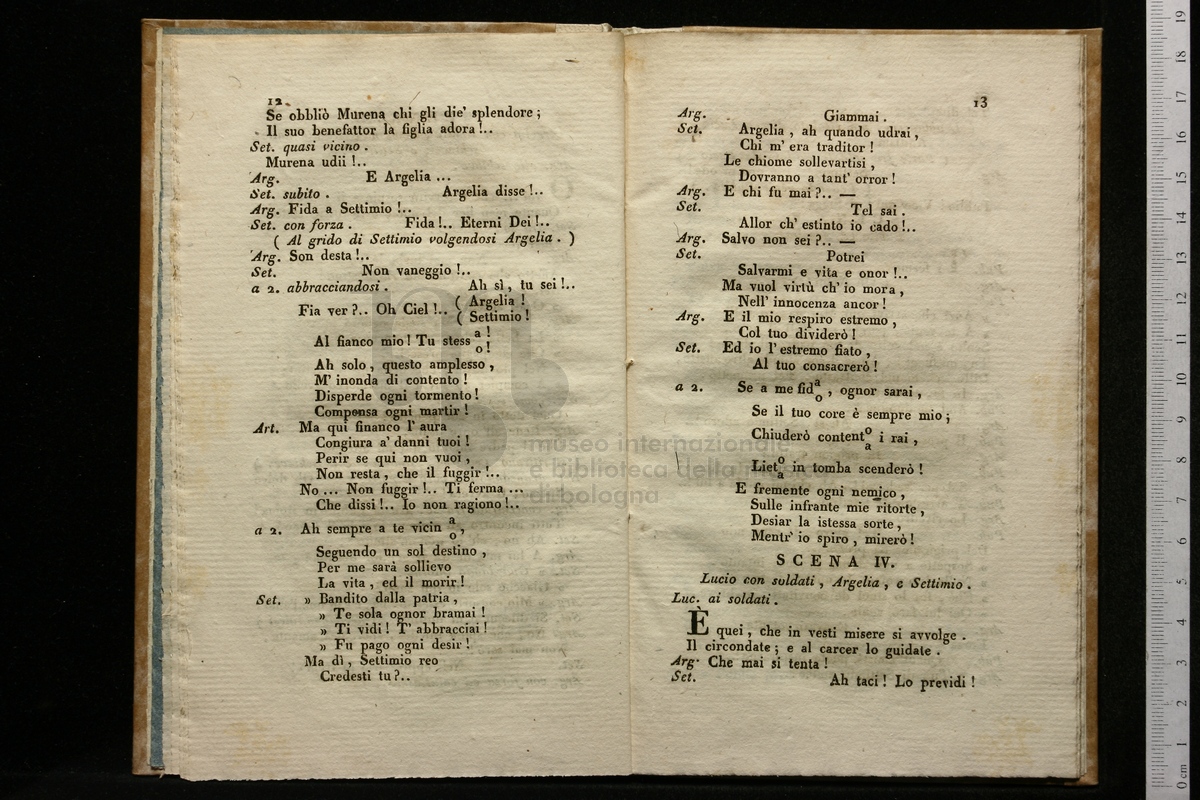 12.
Se obbliò Murena chi gli die' splendore ;
Il suo benefattor la figlia adora !..
Set. quasi vicino .
Murena udii !..
Arg. E Argelia ...
Set. subito . Argelia disse !..
Arg. Fida a Settimio !..
Set. con forza . Fida !.. Eterni Dei !..
( Al grido di Settimio volgendosi Argelia . )
Arg. Son desta !..
Set. Non vaneggio !..
a 2. abbracciandosi . Ah sì , tu sei !..
Fia ver ?.. Oh Ciel !.. ( Argelia !
( Settimio !
Al fianco mio ! Tu stess a !
o !
Ah solo , questo amplesso ,
M' inonda di contento !
Disperde ogni tormento !
Compensa ogni martir !
Art. Ma qui financo l' aura
Congiura a' danni tuoi !
Perir se qui non vuoi ,
Non resta , che il fuggir !..
No ... Non fuggir !.. Ti ferma ...
Che dissi !.. Io non ragiono !..
a 2. Ah sempre a te vicin a
o ,
Seguendo un sol destino ,
Per me sarà sollievo
La vita , ed il morir !
Set. » Bandito dalla patria ,
» Te sola ognor bramai !
» Ti vidi ! T' abbracciai !
» Fu pago ogni desir !
Ma dì , Settimio reo
Credesti tu ?..
13
Arg. Giammai .
Set. Argelia , ah quando udrai ,
Chi m' era traditor !
Le chiome sollevartisi ,
Dovranno a tant' orror !
Arg. E chi fu mai ?.. —
Set. Tel sai .
Allor ch' estinto io cado !..
Arg. Salvo non sei ?.. —
Set. Potrei
Salvarmi e vita e onor !..
Ma vuol virtù ch' io mora ,
Nell' innocenza ancor !
Arg. E il mio respiro estremo ,
Col tuo dividerò !
Set. Ed io l' estremo fiato ,
Al tuo consacrerò !
a 2. Se a me fid a
o , ognor sarai ,
Se il tuo core è sempre mio ;
Chiuderò content o
a i rai ,
Liet o
a in tomba scenderò !
E fremente ogni nemico ,
Sulle infrante mie ritorte ,
Desiar la istessa sorte ,
Mentr' io spiro , mirerò !
SCENA IV.
Lucio con soldati , Argelia , e Settimio .
Luc. ai soldati .
È quei , che in vesti misere si avvolge .
Il circondate ; e al carcer lo guidate .
Arg. Che mai si tenta !
Set. Ah taci ! Lo previdi !
museo internazionale
e biblioteca della
di bologna
0 cm 1 2 3 4 5 6 7 8 9 10 11 12 13 14 15 16 17 18 19